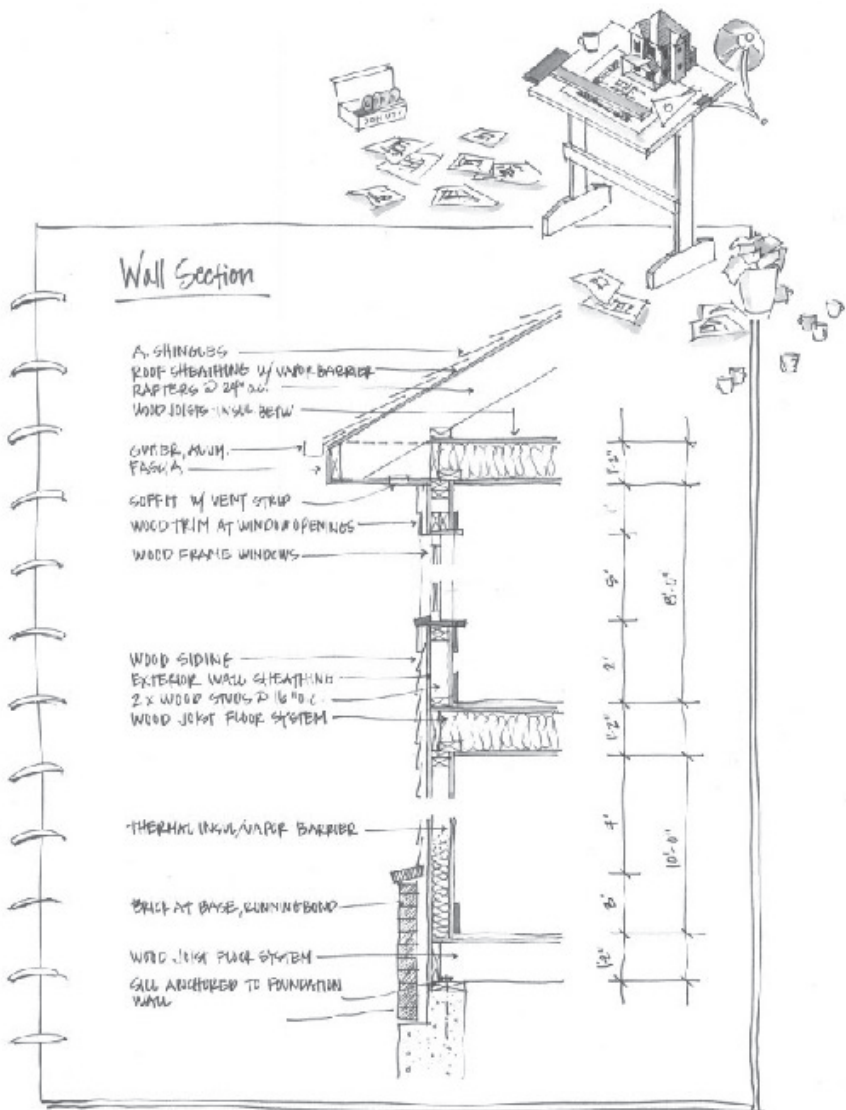 DONUTS
Wall Section
A. SHINGLES
ROOF SHEATHING W/ VAPOR BARRIER
RAFTERS @ 24" o.c.
WOOD JOISTS - INSUL BETW
GUTTER, ALUM.
FASCIA
SOFFIT W/ VENT STRIP
WOOD TRIM AT WINDOW OPENINGS
WOOD FRAME WINDOWS
WOOD SIDING
EXTERIOR WALL SHEATHING
2 x WOOD STUDS @ 16" o.c.
WOOD JOIST FLOOR SYSTEM
THERMAL INSUL/VAPOR BARRIER
BRICK AT BASE, RUNNING BOND
WOOD JOIST FLOOR SYSTEM
SILL ANCHORED TO FOUNDATION
WALL
1'-2"
1'
5'
8'-0"
2'
1'-2"
10'-0"
3'
1'-2"